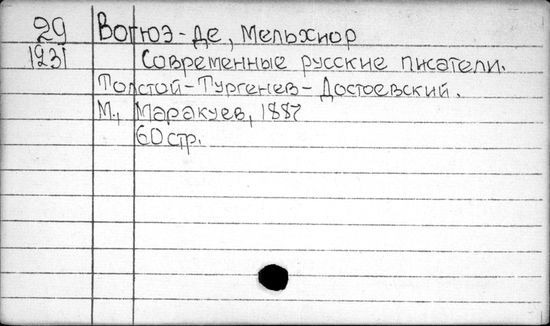 29 Вогюэ-де, Мельхиор
1231 Современные русские писатели.
Толстой-Тургенев-Достоевский.
М., Маракуев, 1887
60 стр.